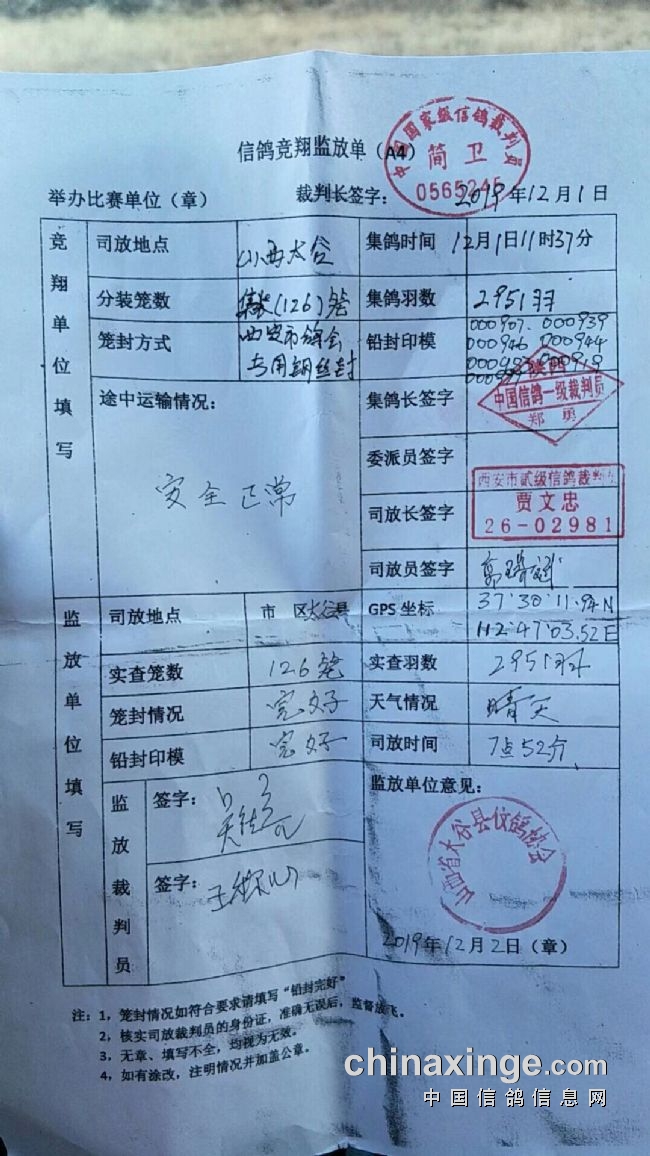 信鸽竞翔监放单（A4）
中国国家级信鸽裁判员
简卫
0565245
举办比赛单位（章） 裁判长签字： 2019年12月1日
竞翔单位填写
司放地点 山西太谷 集鸽时间 12月1日11时37分
分装笼数 (126)笼 集鸽羽数 2951羽
笼封方式 西安市鸽会 铅封印模 000907. 000939
专用钢丝封 000946 000944
途中运输情况： 集鸽长签字
陕西
中国信鸽一级裁判员
郑勇
安全正常
委派员签字
西安市贰级信鸽裁判
贾文忠
26-02981
司放长签字
司放员签字
监放单位填写
司放地点 市 区太谷县 GPS 坐标 37°30'11.94N
112°47'03.52E
实查笼数 126笼 实查羽数 2951羽
笼封情况 完好 天气情况 晴天
铅封印模 完好 司放时间 7点52分
监放裁判员
签字： 监放单位意见：
签字：
山西省太谷县信鸽协会
2019年12月2日（章）
注：1，笼封情况如符合要求请填写“铅封完好”
2，核实司放裁判员的身份证，准确无误后，监督放飞。
3，无章、填写不全，均视为无效。
4，如有涂改，注明情况并加盖公章。
chinaxinge.com
中国信鸽信息网